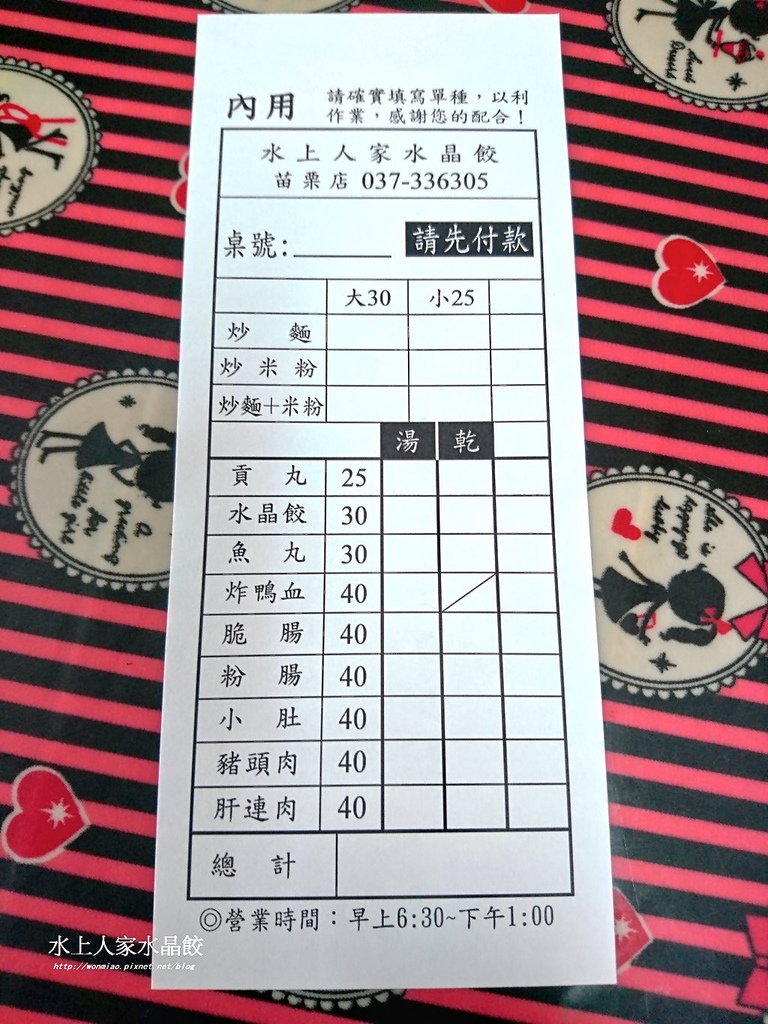 內用
請確實填寫單種，以利
作業，感謝您的配合！
水上人家水晶餃
苗栗店 037-336305
桌號：
請先付款
大30 小25
炒麵
炒米粉
炒麵＋米粉
湯 乾
貢丸 25
水晶餃 30
魚丸 30
炸鴨血 40
脆腸 40
粉腸 40
小肚 40
豬頭肉 40
肝連肉 40
總計
◎營業時間：早上6:30~下午1:00
水上人家水晶餃
http://wonmiao.pixnet.net/blog